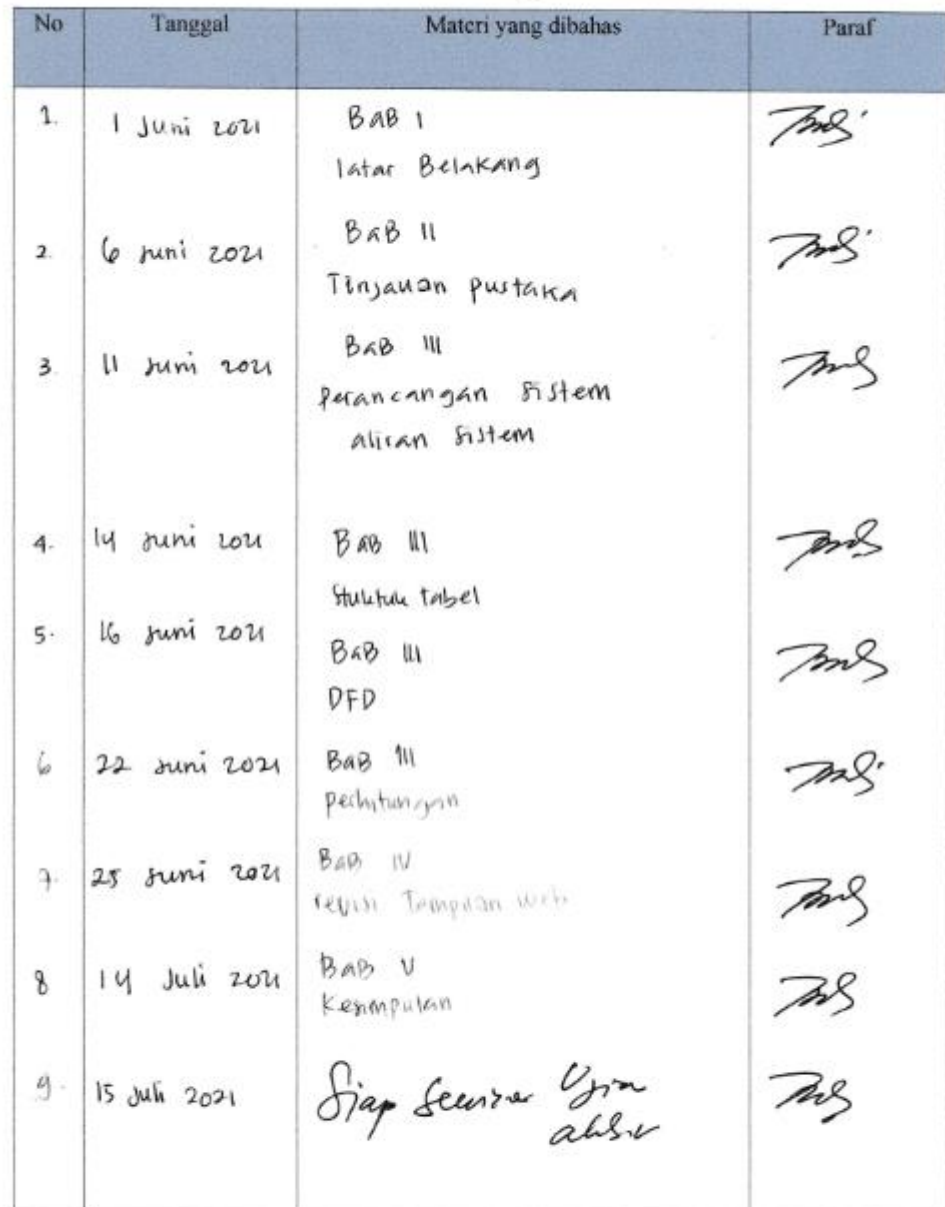 No Tanggal Materi yang dibahas Paraf
1. 1 Juni 2021 BAB I
latar Belakang
2. 6 Juni 2021 BAB II
Tinjauan pustaka
3. 11 Juni 2021 BAB III
perancangan sistem
aliran sistem
4. 14 Juni 2021 BAB III
Stuktuk tabel
5. 16 Juni 2021 BAB III
DFD
6 22 Juni 2021 BAB III
perhitungan
7. 25 Juni 2021 BAB IV
revisi Tampilan web
8 14 Juli 2021 BAB V
Kesimpulan
9. 15 Juli 2021 Siap Seminar Ujian
akhir